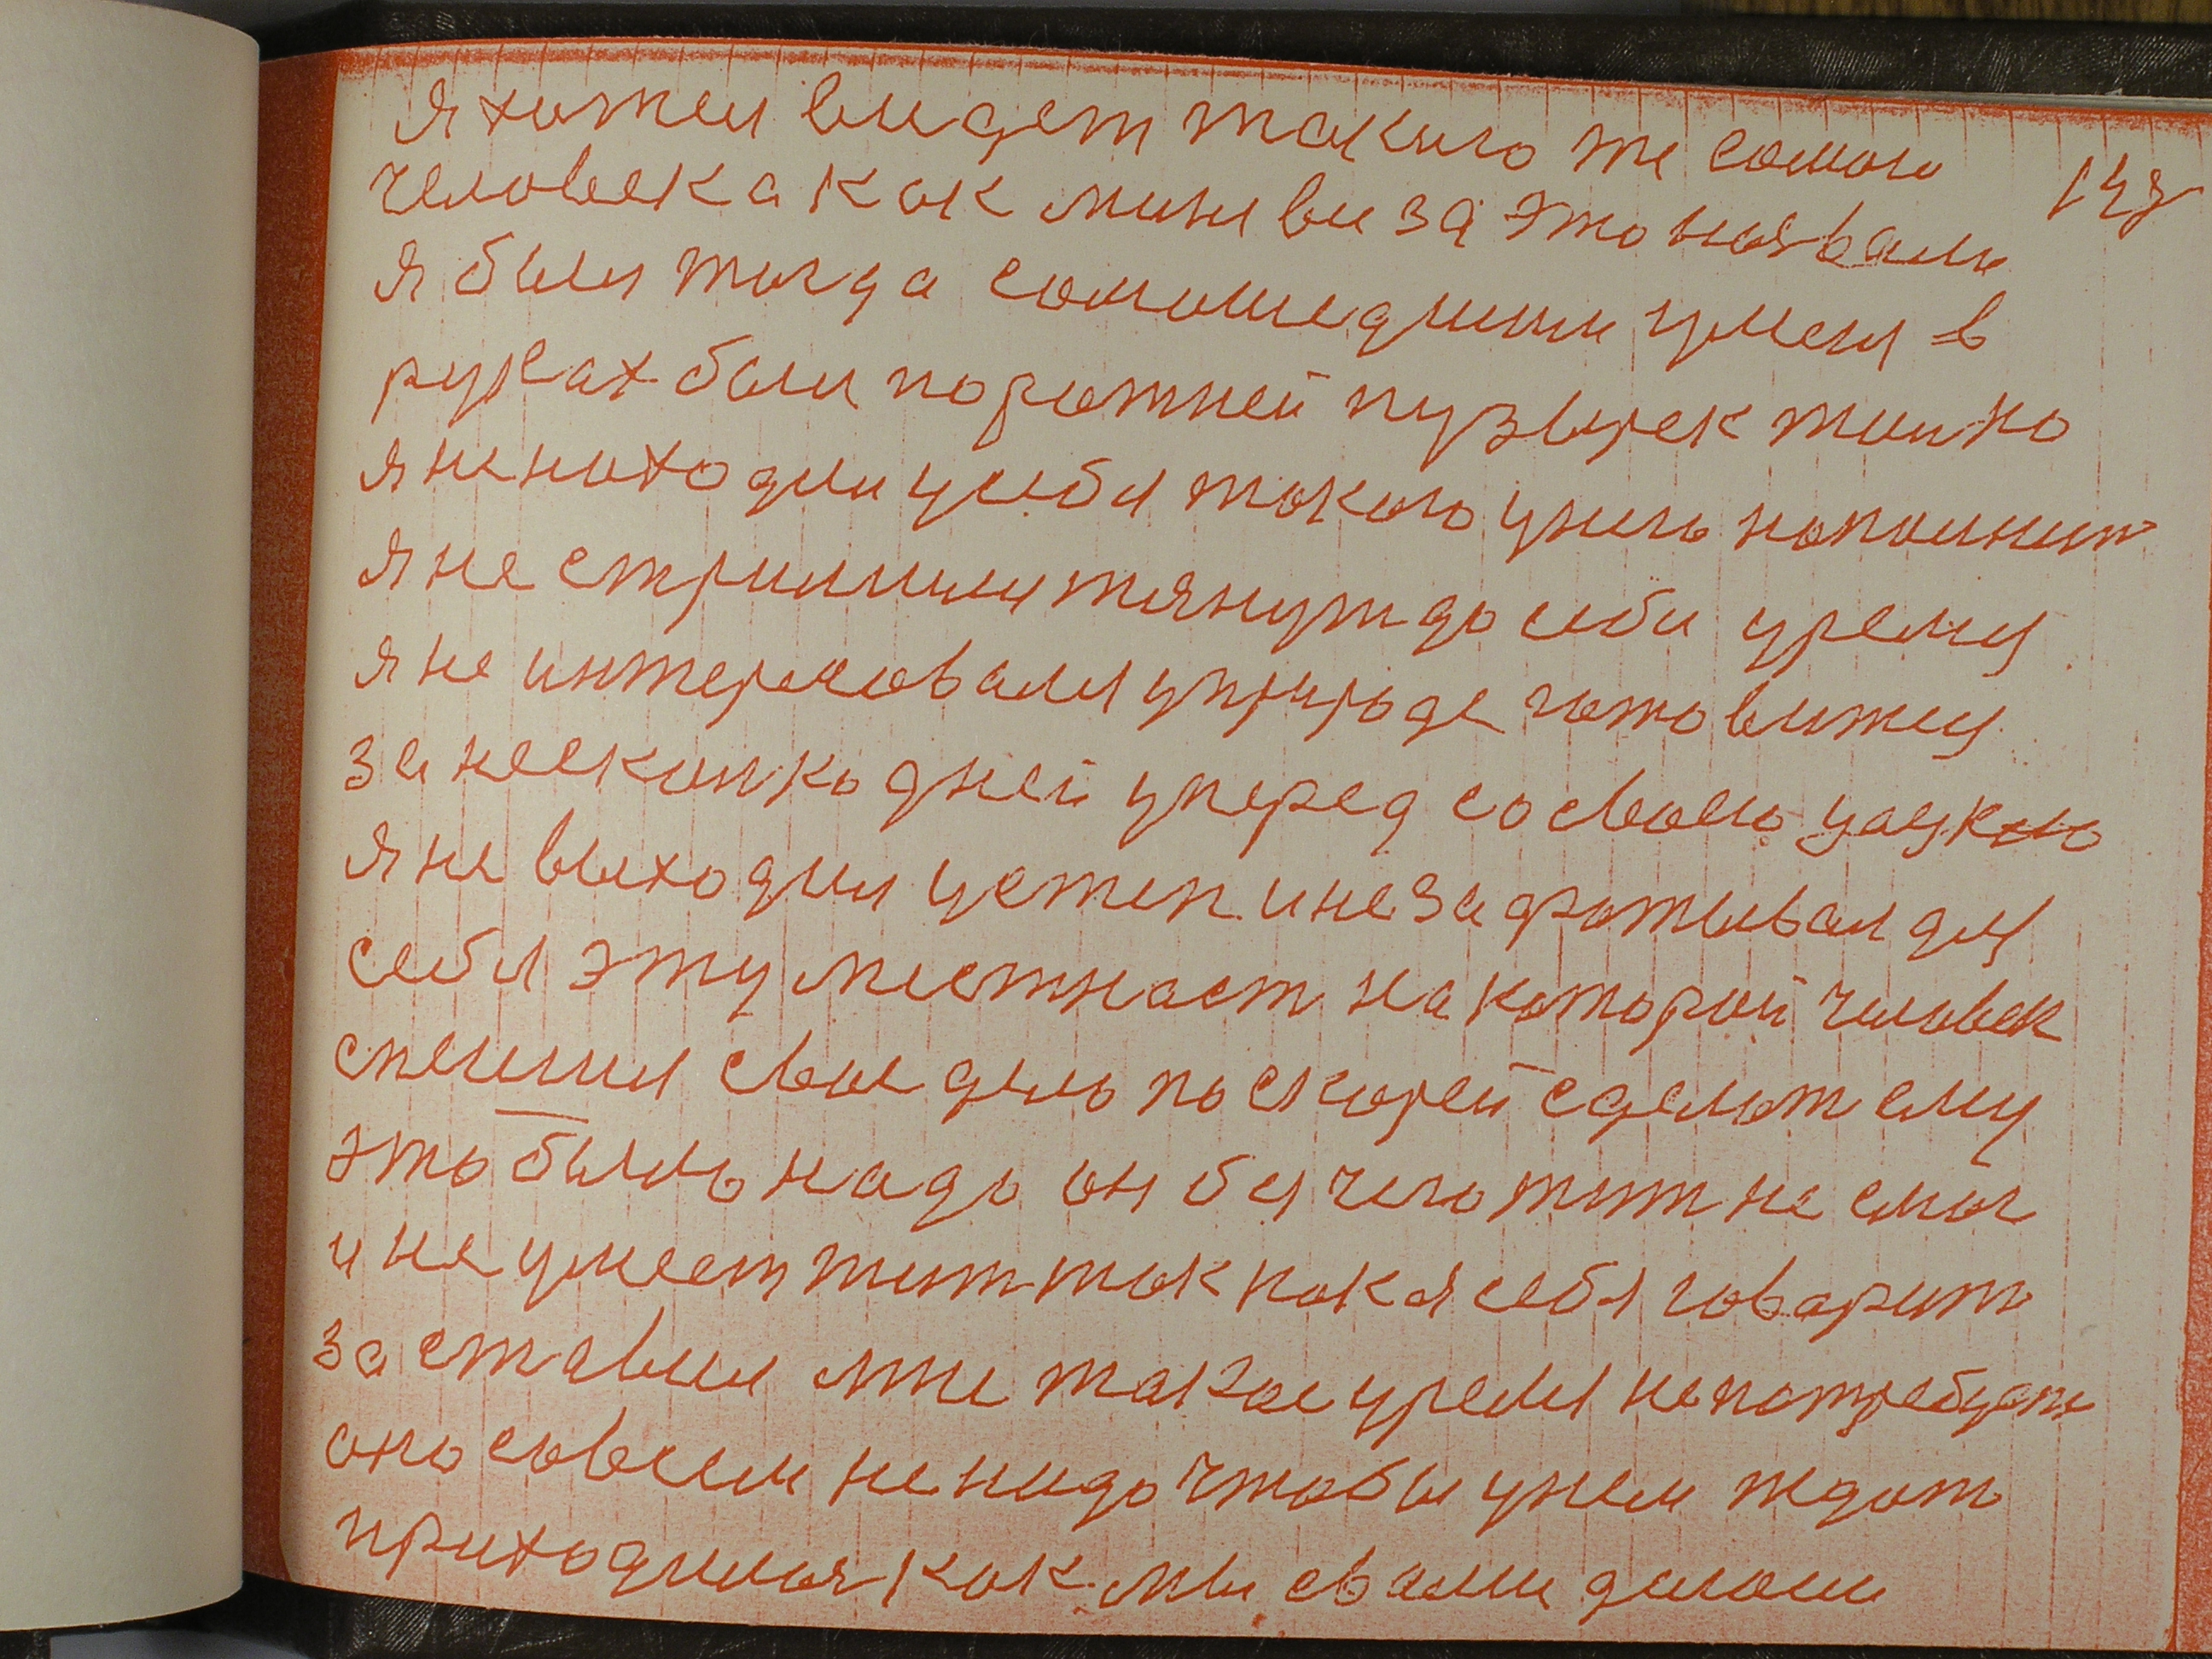 я хотел видет такого же самого 147
человека как мине ви за это назвали
я был тогда самошедшим умел в
руках был порожней пузырек толко
я не находил у себя такого у него наполнит
я не стримился тянут до себя уремя
я не интересовался у природе готовится
за несколко дней уперед со своею уаукою
я не выходил у степ и не захватывал для
себя эту местност на которой человек
спешил свое дело поскорей сделат ему
это было надо он без чего жит не смог
и не умеет жит так как я себя говорит
заставил мне такое уремя непотребует
оно совсем не надо чтобы у нем ждат
приходился как мы с вами делаем